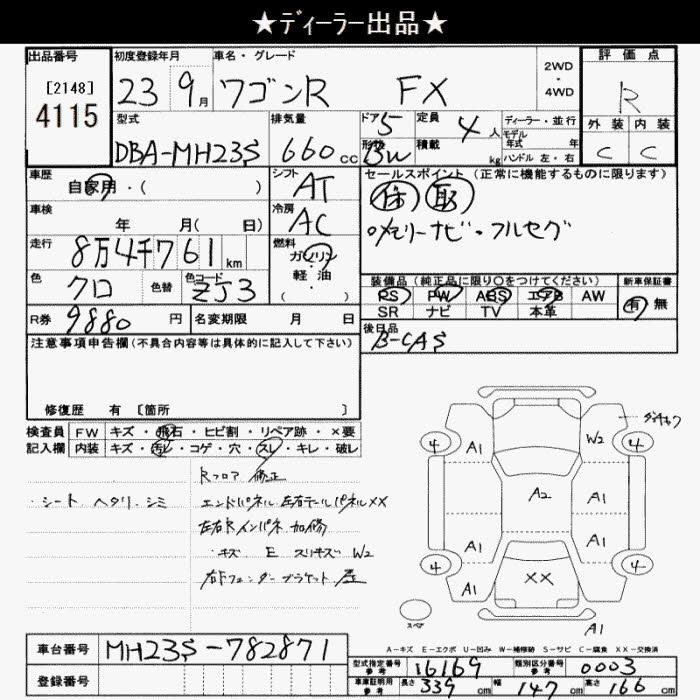 ★ディーラー出品★
出品番号 初度登録年月 車名・グレード 2WD・4WD 評価点
[2148]
4115 23 9月 ワゴンR FX R
型式 排気量 ドア 5 定員 4人 ディーラー・並行 外装 内装
DBA-MH23S 660cc 形状 BW 積載 kg モデル年式 年 ハンドル 左・右 C C
車歴 シフト セールスポイント(正常に機能するものに限ります)
自家用・( ) AT 保 取
車検 冷房 メモリーナビ・フルセグ
年 月( 日) AC
走行 燃料
8万4千761km ガソリン・軽油 ( )
色 色替 色コード 装備品(純正品に限り○をつけてください) 新車保証書
クロ ZJ3 PS PW ABS エアB AW 有・無
SR ナビ TV 本革
R券 9880円 名変期限 月 日 後日品
B-CAS
注意事項申告欄(不具合内容等は具体的に記入して下さい)
修復歴 有 [箇所 ]
検査員 FW キズ・飛石・ヒビ割・リペア跡・×要
記入欄 内装 キズ・汚レ・コゲ・穴・スレ・キレ・破レ
Rフロア 修正
・シート ヘタリ、シミ エンドパネル 左右テールパネルXX
左右Rインパネ 加修
・キズ E スリキズ W2
右Fフェンダーブラケット
4 A1 W2 4
A2
A1 A1
A1 A1
4 4
A1 XX A1
スペア A1
A-キズ E-エクボ U-凹み W-補修跡 S-サビ C-腐食 XX-交換済
車台番号 MH23S-782871
登録番号
型式指定番号 参考 16169 類別区分番号 参考 0003
車庫証明用 参考 長さ 339cm 幅 147cm 高さ 166cm